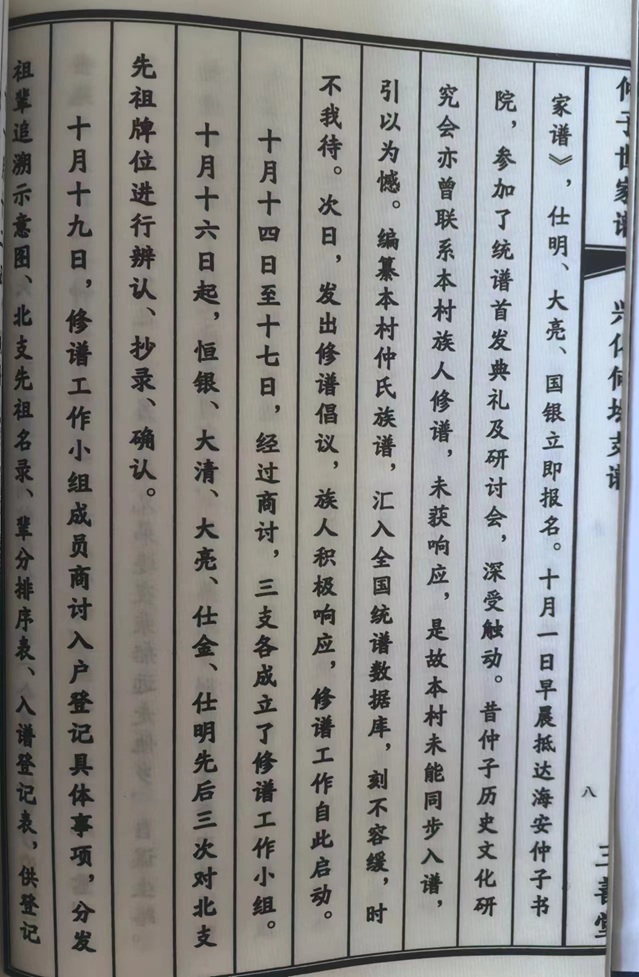 仲子世家谱
兴化何垛支谱
八
三善堂
家谱》，仕明、大亮、国银立即报名。十月一日早晨抵达海安仲子书
院，参加了统谱首发典礼及研讨会，深受触动。昔仲子历史文化研
究会亦曾联系本村族人修谱，未获响应，是故本村未能同步入谱，
引以为憾。编纂本村仲氏族谱，汇入全国统谱数据库，刻不容缓，时
不我待。次日，发出修谱倡议，族人积极响应，修谱工作自此启动。
十月十四日至十七日，经过商讨，三支各成立了修谱工作小组。
十月十六日起，恒银、大清、大亮、仕金、仕明先后三次对北支
先祖牌位进行辨认、抄录、确认。
十月十九日，修谱工作小组成员商讨入户登记具体事项，分发
祖辈追溯示意图、北支先祖名录、辈分排序表、入谱登记表，供登记